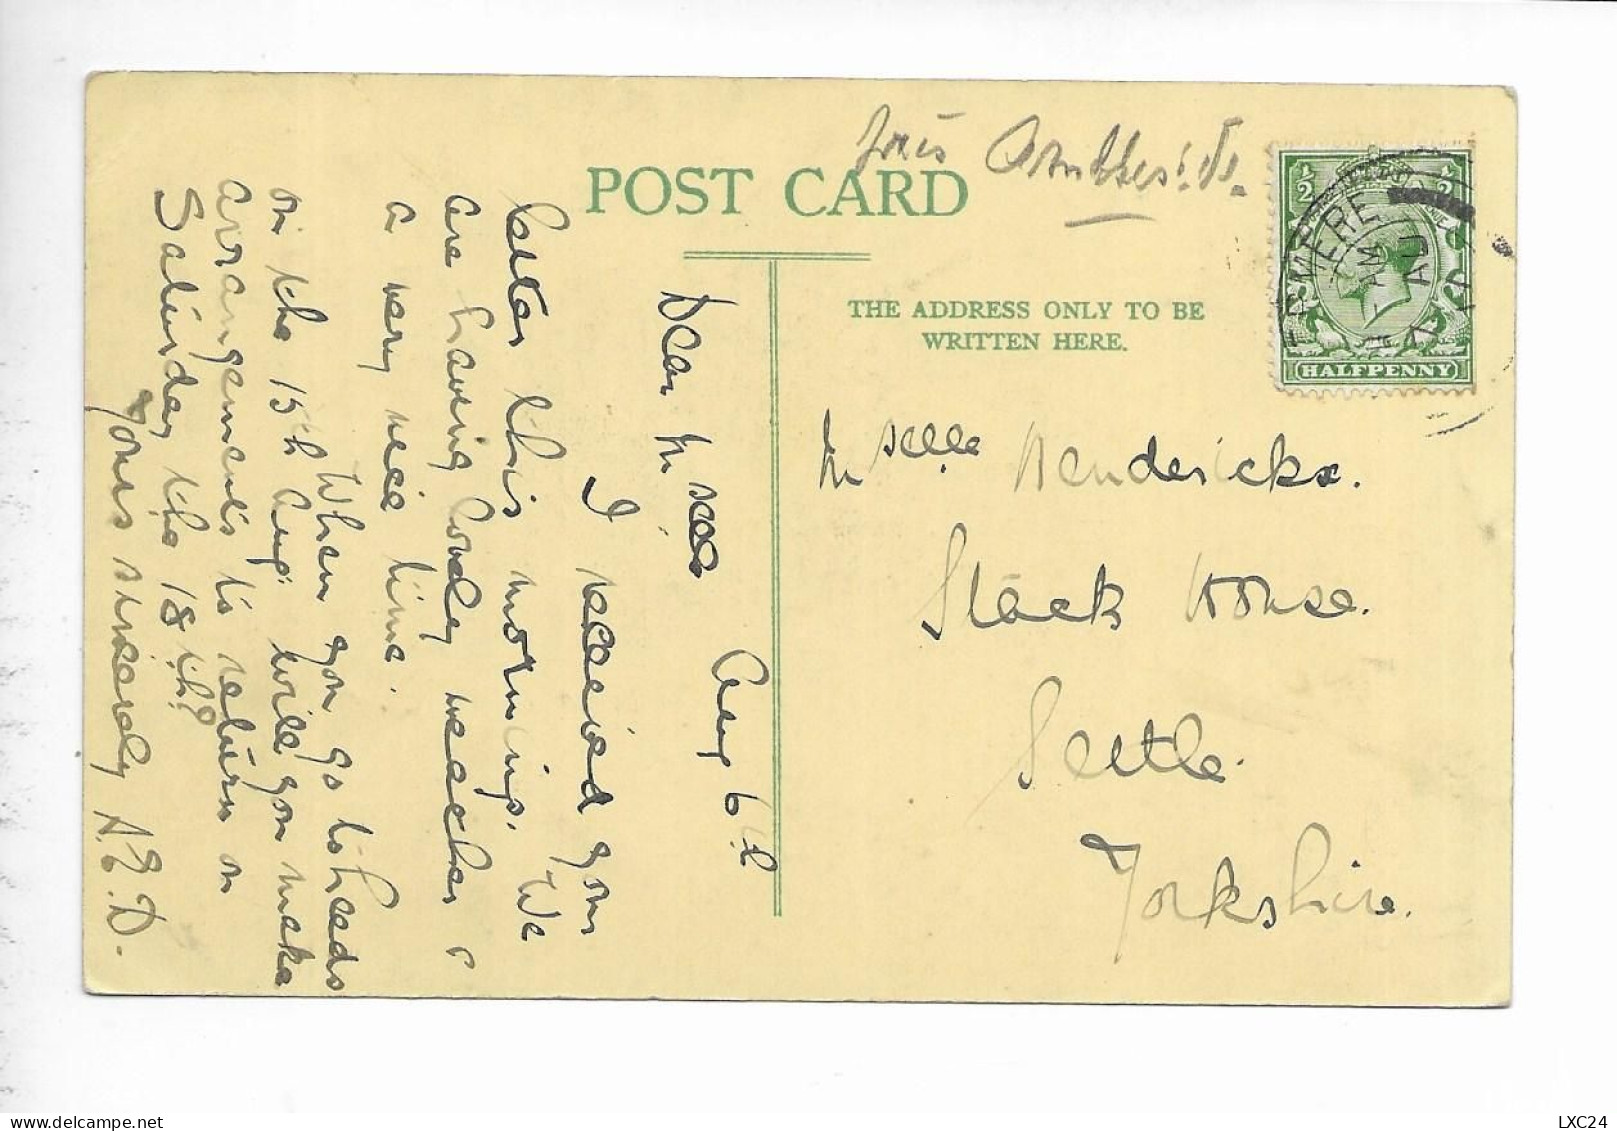 POST CARD
THE ADDRESS ONLY TO BE
WRITTEN HERE.
½ ½
HALFPENNY
ERMERE
AM
AU
Mselle Hendericks.
Stack House.
Settle.
Yorkshire.
Aug 6th
Dear M.selle
I received your
letter this morning. We
are having lovely weather &
a very nice time.
When you go to Leeds
on the 15th Aug: will you make
arrangements to return on
Saturday the 18th?
Yours sincerely A.E.D.
LXC24